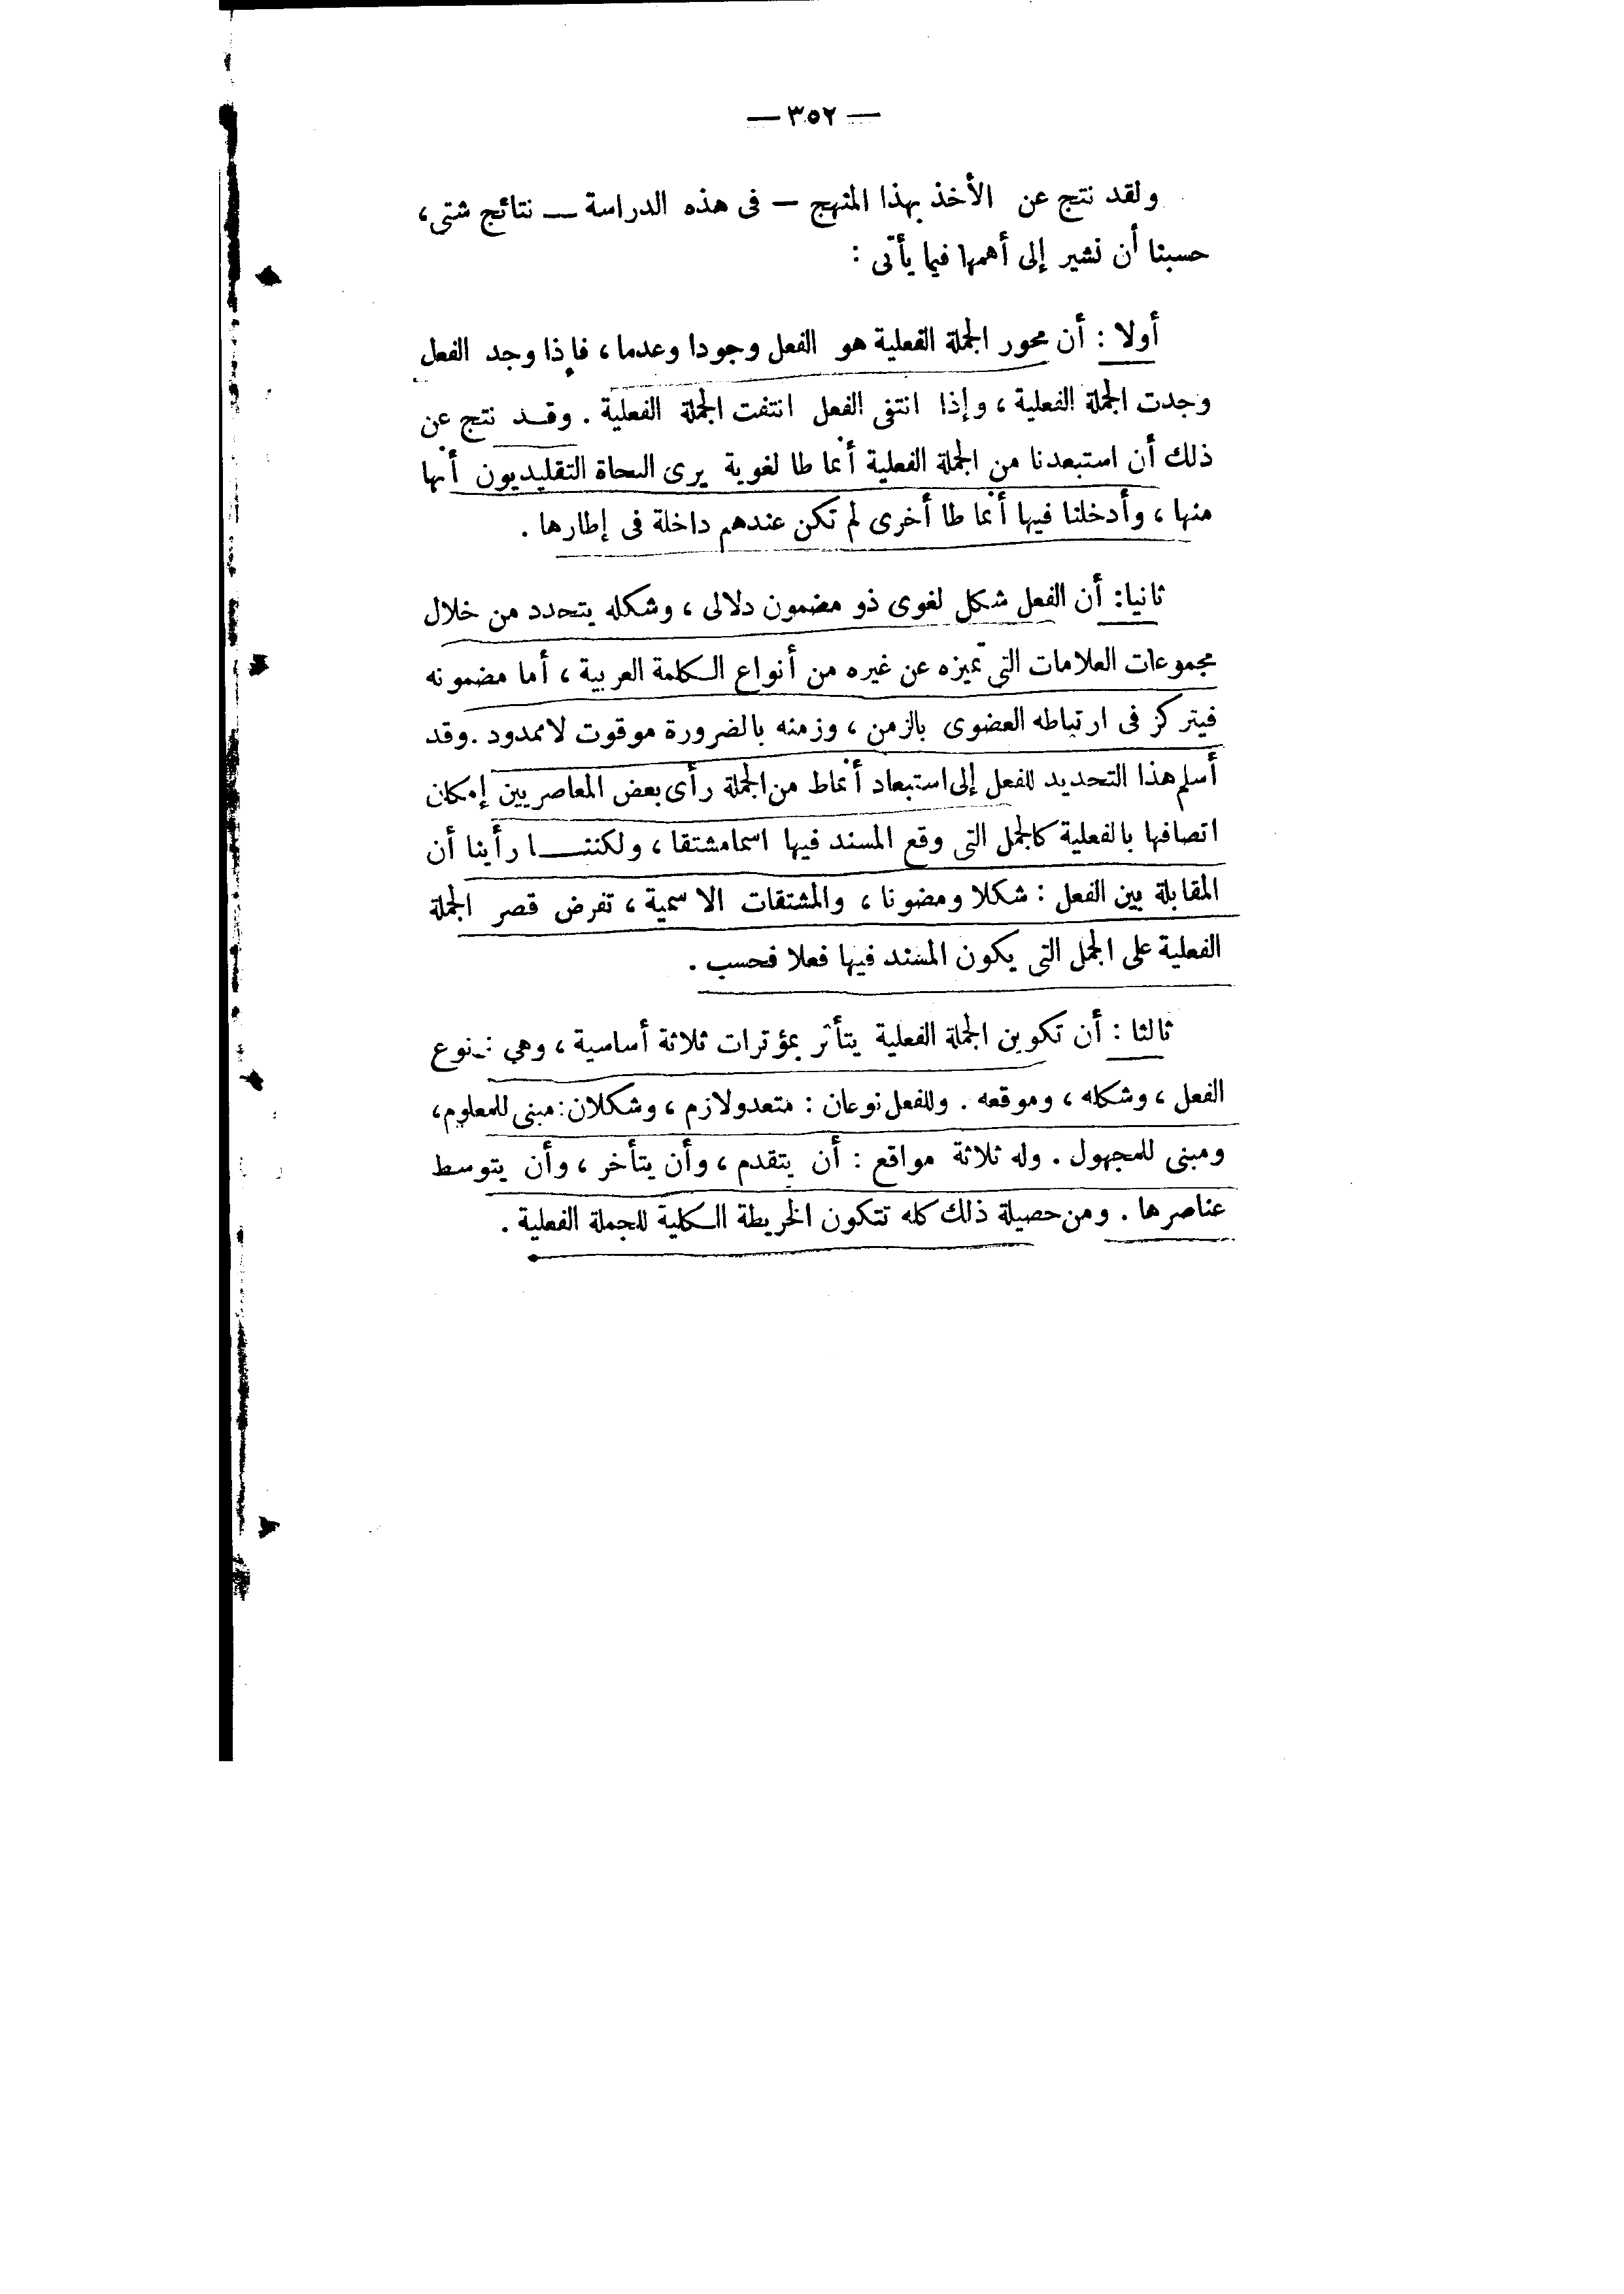 — ٣٥٢ —
ولقد نتج عن الأخذ بهذا المنهج — فى هذه الدراسة — نتائج شتى،
حسبنا أن نشير إلى أهمها فيما يأتى :
أولا : أن محور الجملة الفعلية هو الفعل وجودا وعدما، فإذا وجد الفعل
وجدت الجملة الفعلية ، وإذا انتفى الفعل انتفت الجملة الفعلية . وقد نتج عن
ذلك أن استبعدنا من الجملة الفعلية أنماطا لغوية يرى النحاة التقليديون أنها
منها ، وأدخلنا فيها أنماطا أخرى لم تكن عندهم داخلة فى إطارها .
ثانيا: أن الفعل شكل لغوى ذو مضمون دلالى ، وشكله يتحدد من خلال
مجموعات العلامات التى تميزه عن غيره من أنواع الكلمة العربية ، أما مضمونه
فيتركز فى ارتباطه العضوى بالزمن ، وزمنه بالضرورة موقوت لا ممدود . وقد
أسلم هذا التحديد للفعل إلى استبعاد أنماط من الجملة رأى بعض المعاصريين إمكان
اتصافها بالفعلية كالجمل التى وقع المسند فيها اسما مشتقا ، ولكننا رأينا أن
المقابلة بين الفعل : شكلا ومضونا ، والمشتقات الاسمية ، تفرض قصر الجملة
الفعلية على الجمل التى يكون المسند فيها فعلا فحسب .
ثالثا : أن تكوين الجملة الفعلية يتأثر بمؤثرات ثلاثة أساسية ، وهي : نوع
الفعل ، وشكله ، وموقعه . وللفعل نوعان : متعد ولازم ، وشكلان : مبنى للمعلوم،
ومبنى للمجهول . وله ثلاثة مواقع : أن يتقدم ، وأن يتأخر ، وأن يتوسط
عناصرها . ومن حصيلة ذلك كله تتكون الخريطة الكلية للجملة الفعلية .